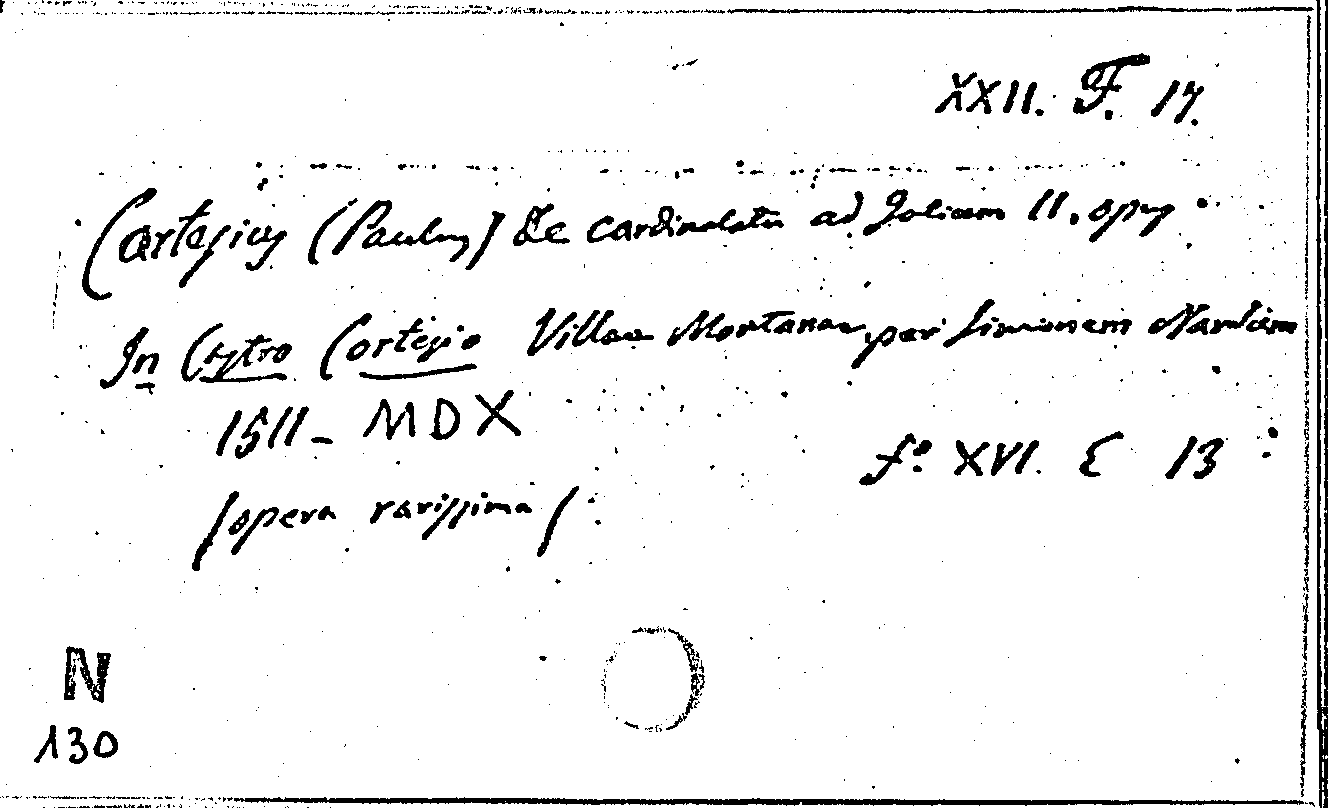 XXII. F. 17.
Cortesius (Paulus) De cardinalatu ad Julium II. opus
In Castro Cortesio Villae Montanae, per Simionem Nardum
1511 - MDX
fo. XVI. E 13
(opera rarissima)
N
130